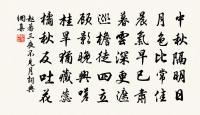 中秋隔明日
月色比常佳
晨氣早已肅
暮雲深更遮
巡檐徒四立
顧影晚興嗟
桂旱獨藏蕊
橘秋吐花
趙蕃三夜不見月詞典
網集